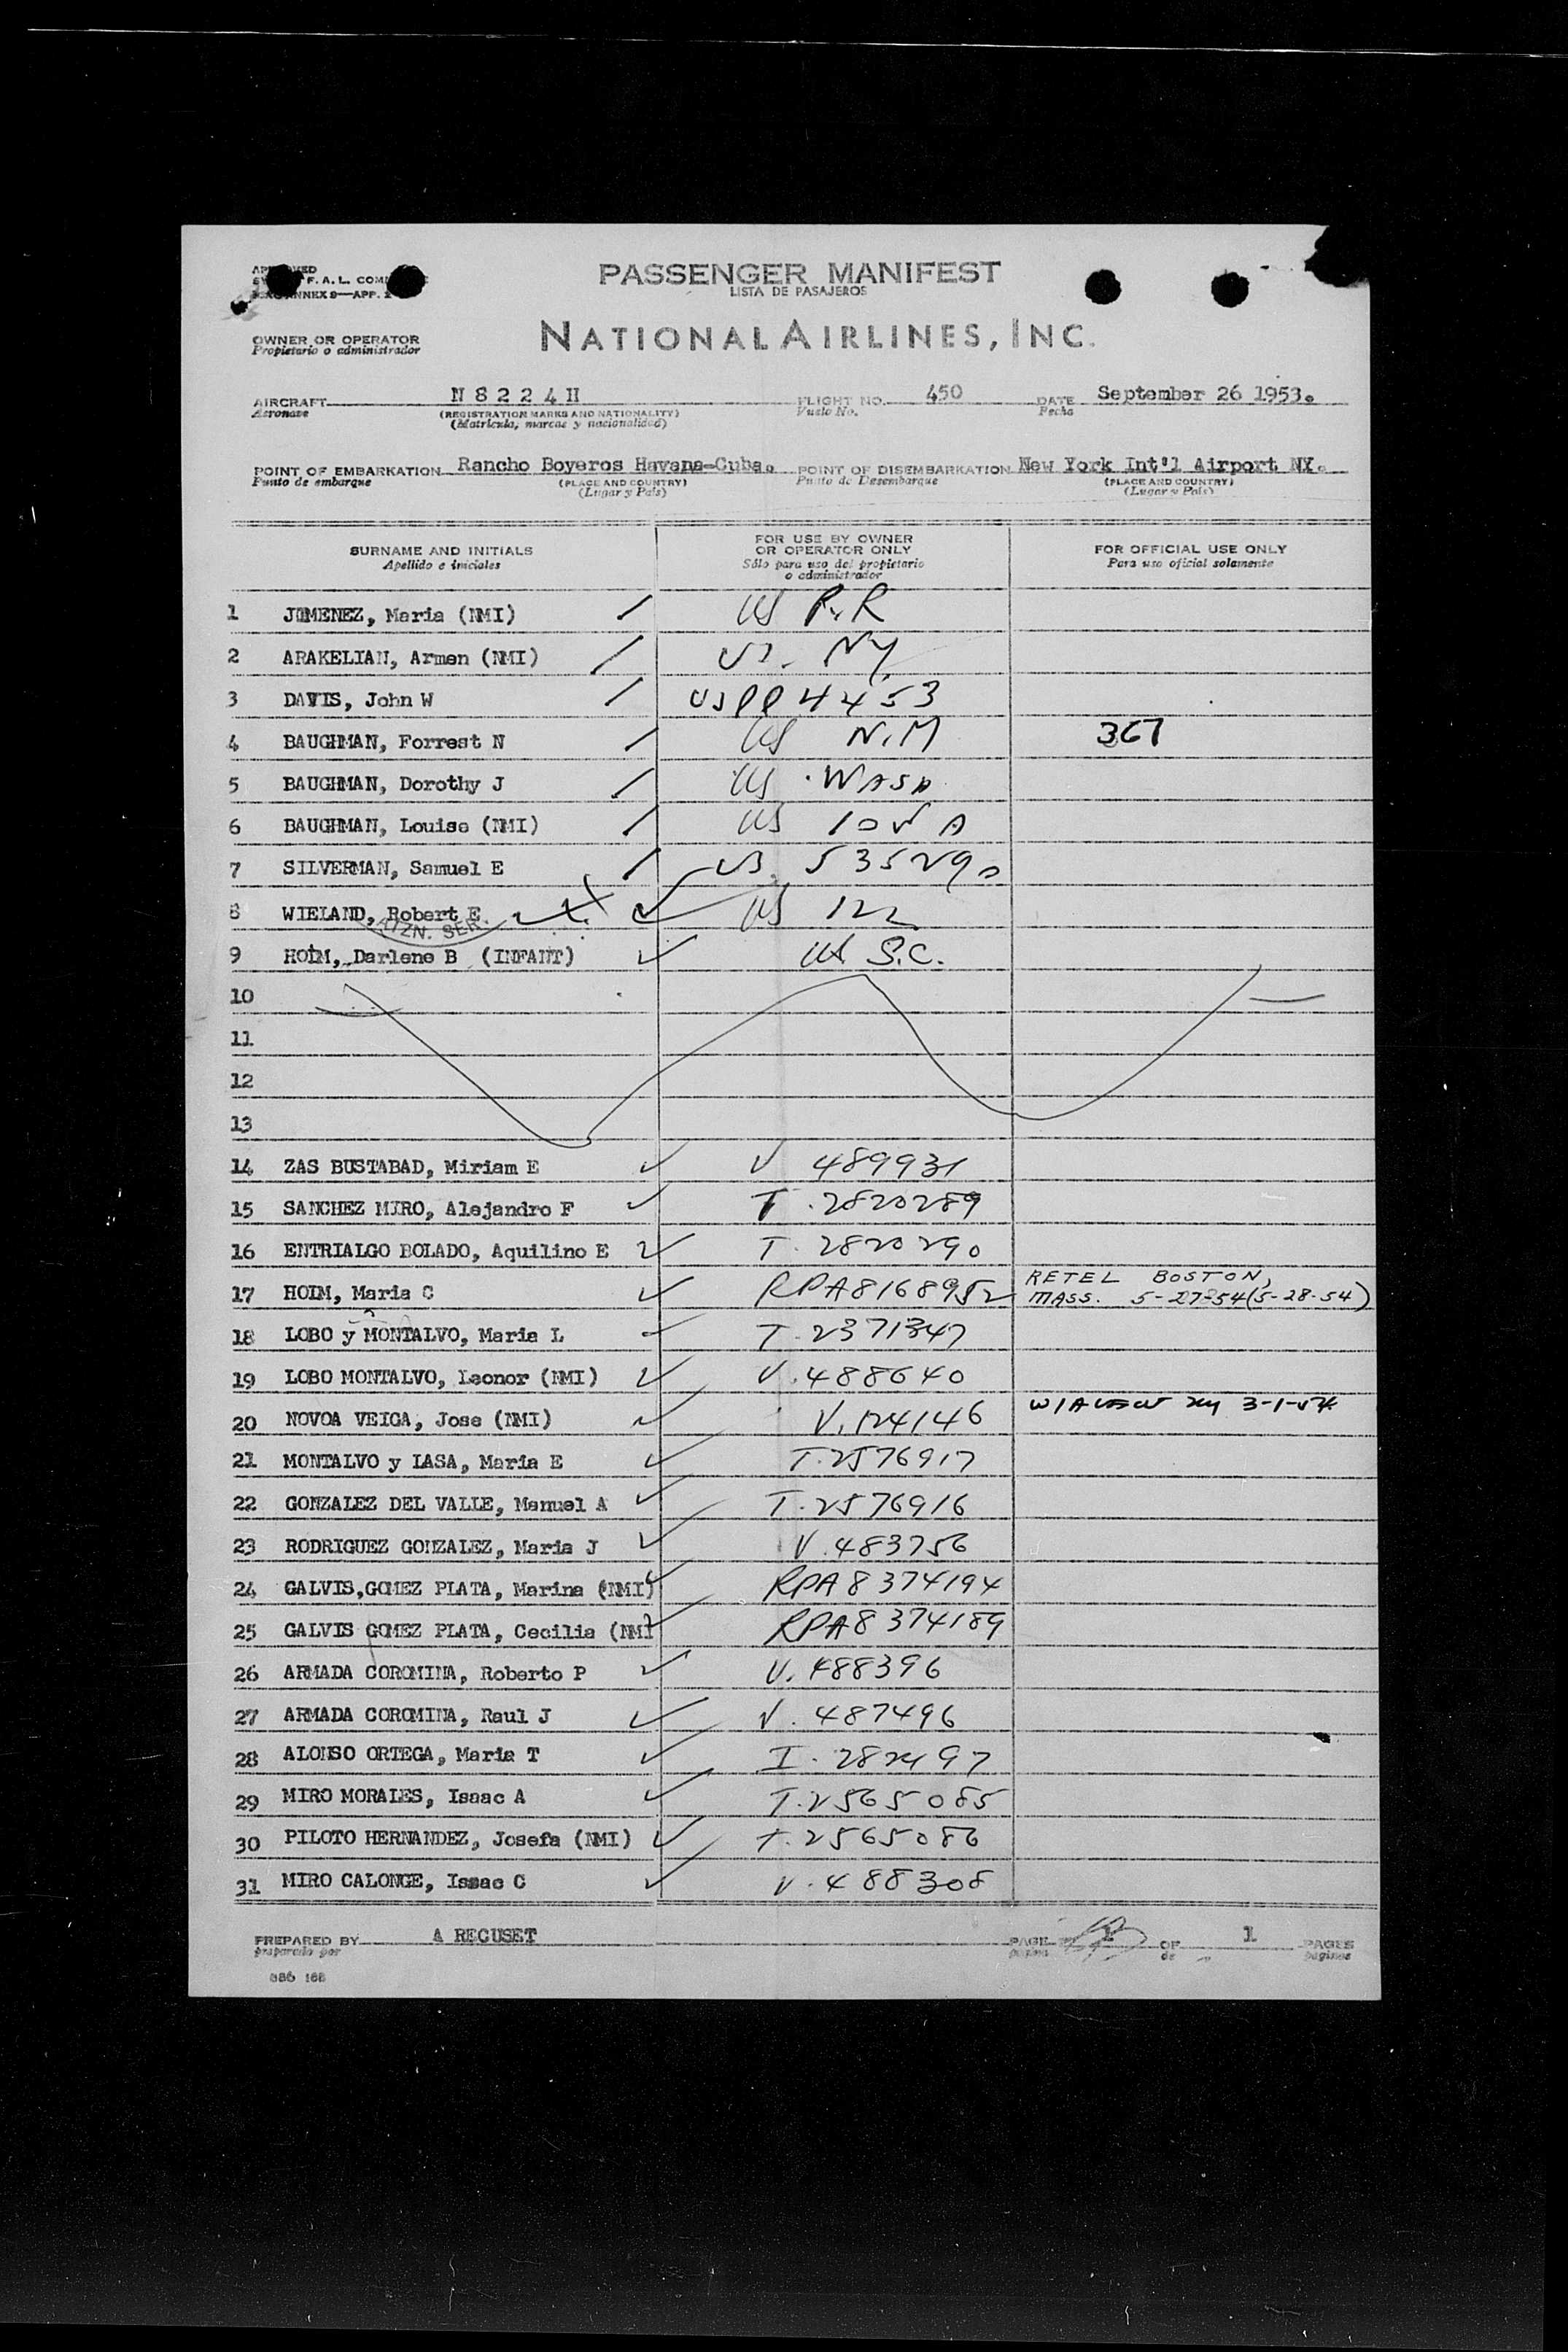 PASSENGER MANIFEST
LISTA DE PASAJEROS
F. A. L. COM
ANNEX 9—APP. 2
OWNER OR OPERATOR
Propietario o administrador
NATIONAL AIRLINES, INC.
AIRCRAFT N 8 2 2 4 H FLIGHT NO. 450 DATE September 26 1953.
Aeronave (REGISTRATION MARKS AND NATIONALITY) Vuelo No. Fecha
(Matrícula, marcas y nacionalidad)
POINT OF EMBARKATION Rancho Boyeros Havana-Cuba. POINT OF DISEMBARKATION New York Int'l Airport NY.
Punto de embarque (PLACE AND COUNTRY) Punto de Desembarque (PLACE AND COUNTRY)
(Lugar y País) (Lugar y País)
SURNAME AND INITIALS FOR USE BY OWNER OR OPERATOR ONLY FOR OFFICIAL USE ONLY
Apellido e iniciales Sólo para uso del propietario o administrador Para uso oficial solamente
1 JIMENEZ, Maria (NMI) US P.R
2 ARAKELIAN, Armen (NMI) US. NY
3 DAVIS, John W US PP 4453
4 BAUGHMAN, Forrest N US N.M 367
5 BAUGHMAN, Dorothy J US . WASH
6 BAUGHMAN, Louise (NMI) US IOWA
7 SILVERMAN, Samuel E US. 535290
8 WIELAND, Robert E US 122
9 HOIM, Darlene B (INFANT) US S.C.
10
11
12
13
14 ZAS BUSTABAD, Miriam E V 489931
15 SANCHEZ MIRO, Alejandro F T . 2820289
16 ENTRIALGO BOLADO, Aquilino E T. 2820290
17 HOIM, Maria C RPA8168952 RETEL BOSTON,
MASS. 5-27-54(5-28-54)
18 LOBO y MONTALVO, Maria L T. 2371347
19 LOBO MONTALVO, Leonor (NMI) V. 488640
20 NOVOA VEIGA, Jose (NMI) V. 124146 3-1-54
21 MONTALVO y LASA, Maria E T. 2576917
22 GONZALEZ DEL VALLE, Manuel A T. 2576916
23 RODRIGUEZ GONZALEZ, Maria J V. 483756
24 GALVIS,GOMEZ PLATA, Marina (NMI) RPA8374194
25 GALVIS GOMEZ PLATA, Cecilia (NMI RPA8374189
26 ARMADA COROMINA, Roberto P V. 488396
27 ARMADA COROMINA, Raul J V. 487496
28 ALONSO ORTEGA, Maria T
29 MIRO MORALES, Isaac A T. 2565085
30 PILOTO HERNANDEZ, Josefa (NMI) T. 2565086
31 MIRO CALONGE, Isaac C V. 488308
PREPARED BY A RECUSET PAGE OF 1 PAGES
preparado por pagina de paginas